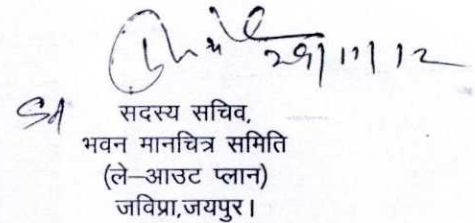 29/11/12
सदस्य सचिव,
भवन मानचित्र समिति
(ले–आउट प्लान)
जविप्रा,जयपुर।